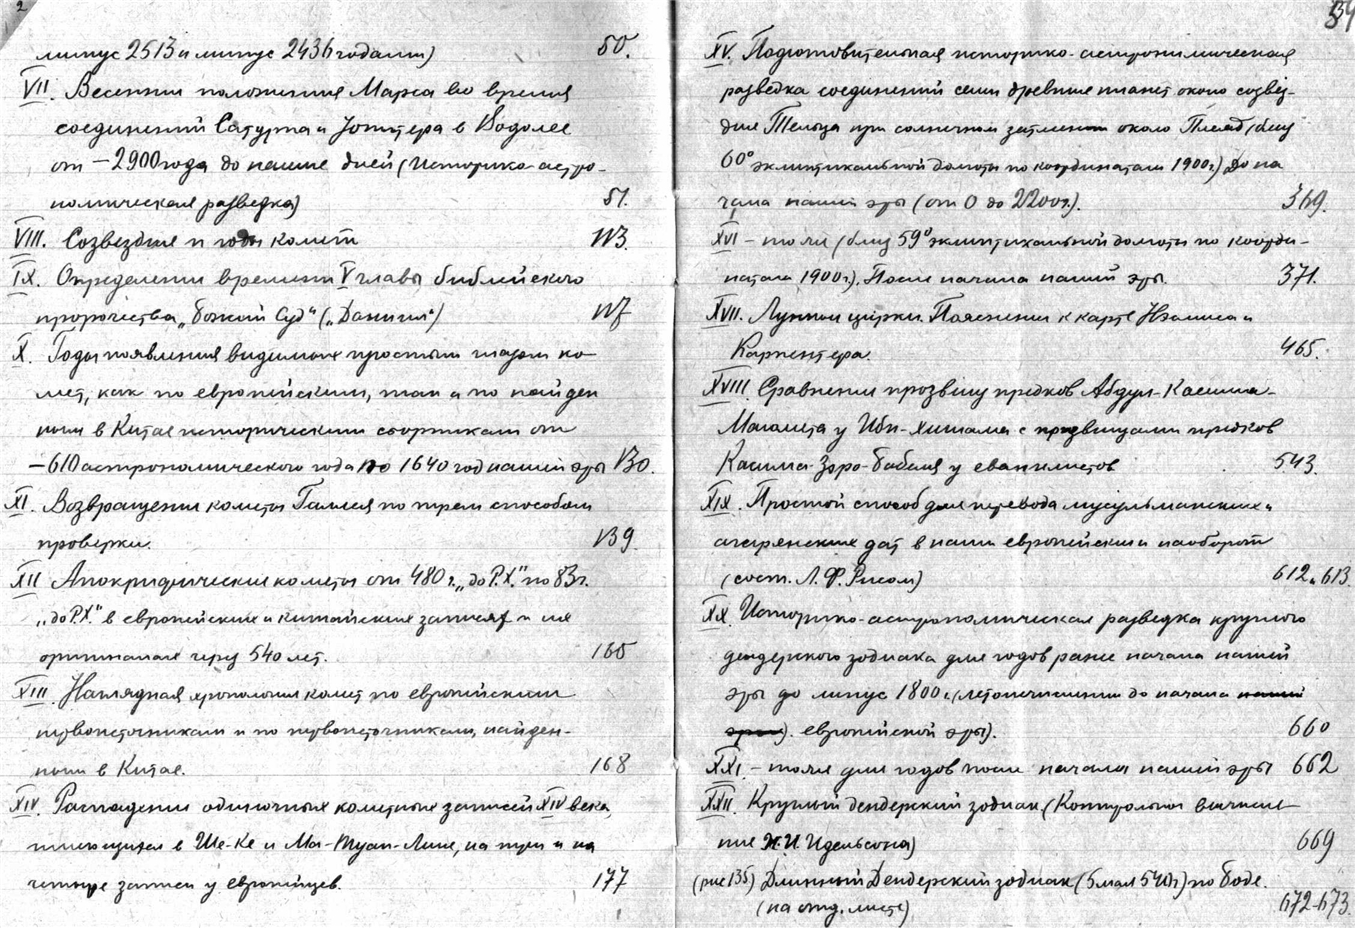 2
минус 2513 и минус 2436 годами) 50.
VII. Весенния положения Марса во время
соединений Сатурна и Юпитера в Водолее
от −2900 года до наших дней (Историко-астро-
номическая разведка) 51.
VIII. Созвездия и годы комет 113.
IX. Определение времени V главы библейского
пророчества „Божий Суд“ („Даниил“) 117
X. Годы появления видимых простым глазом ко-
мет, как по европейским, так и по найден
ным в Китае историческим сборникам от
−610 астрономического года по 1640 год нашей эры 130.
XI. Возвращения кометы Галлея по трем способам
проверки. 139
XII Апокрифические кометы от 480 г. „до Р.Х.“ по 83 г.
„до Р.Х.“ в европейских и китайских записях и их
оригиналах через 540 лет. 165
XIII. Наглядная хронология комет по европейским
первоисточникам и по первоисточникам, найден-
ным в Китае. 168
XIV. Распадение одиночных кометных записей XIV века,
имеющихся в Ше-Ке и Ма-Туан-Лине, на три и на
четыре записи у европейцев. 177
XV. Подготовительная историко-астрономическая
разведка соединений семи древних планет около созвез-
дия Тельца при солнечном затмении около Плеяд (близ
60° эклиптикальной долготы по координатам 1900 г.) до на
чала нашей эры (от 0 до 2200 г.). 369.
XVI – то же (близ 59° эклиптикальной долготы по коорди-
натам 1900 г.). После начала нашей эры. 371.
XVII. Лунные цирки. Пояснения к карте Нэсмиса и
Карпентера. 465.
XVIII. Сравнение прозвищ предков Абдул-Касима-
Магомета у Ибн-Хишама с прозвищами предков
Касима-Зоро-Бабеля у евангелистов 543.
XIX. Простой способ для перевода мусульманских и
агарянских дат в наши европейские и наоборот
(сост. Л. Ф. Рисом) 612 и 613.
XX. Историко-астрономическая разведка круглого
дендерского зодиака для годов ранее начала нашей
эры до минус 1800 г. (летоисчисления до начала нашей
эры). европейской эры). 660
XXI – то же для годов после начала нашей эры 662
XXII. Круглый дендерский зодиак (Контрольное вычисле-
ние Н. И Идельсона) 669
(рис 135) Длинный Дендерский зодиак (5 мая 540 г) по Боде.
(на отд. листе) 672-673.